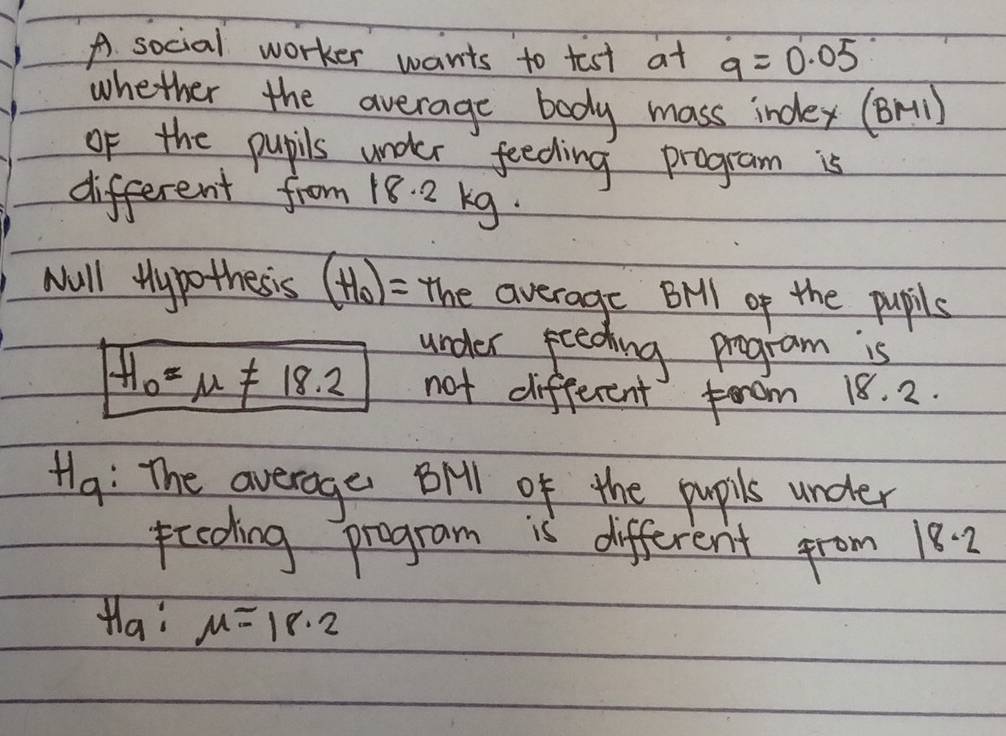 A social worker wants to test at a = 0.05
whether the average body mass index (BMI)
of the pupils under feeding program is
different from 18.2 kg.
Null Hypothesis (H₀) = The average BMI of the pupils
under feeding program is
H₀ = μ ≠ 18.2 not different from 18.2.
Ha: The average BMI of the pupils under
feeding program is different from 18.2
Ha: μ = 18.2